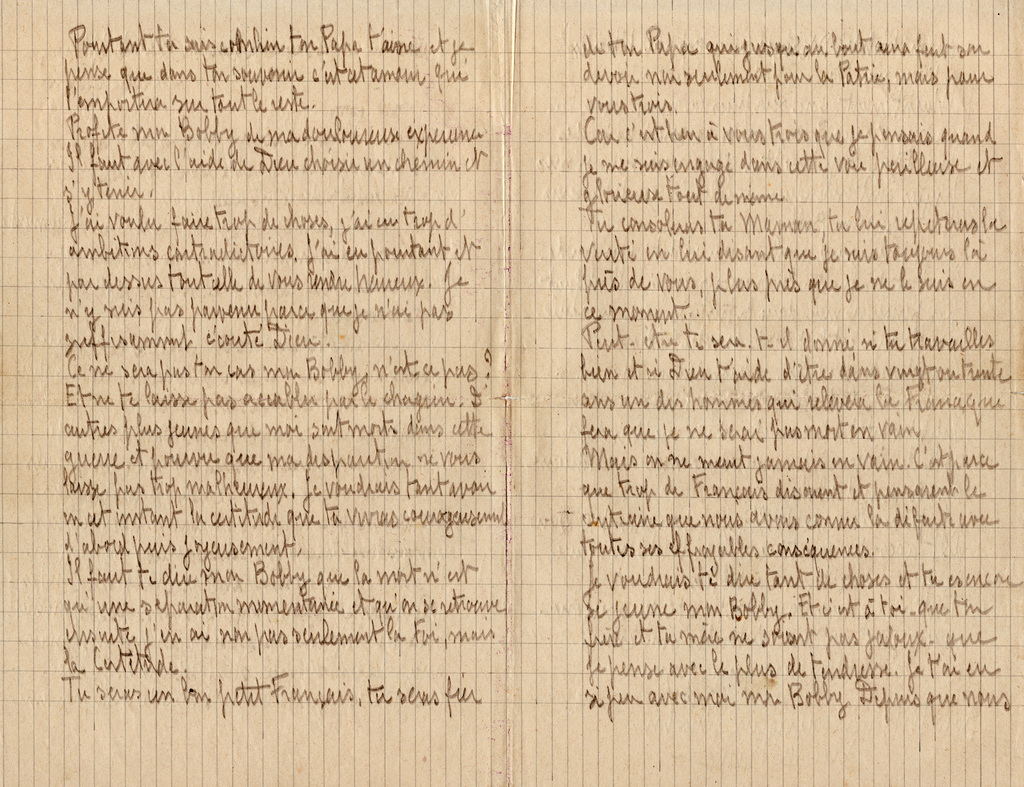 Pourtant tu sais combien ton Papa t'aime et je
pense que dans ton souvenir c'est cet amour qui
l'emportera sur tout le reste.
Profite mon Bobby de ma douloureuse expérience
Il faut avec l'aide de Dieu choisir un chemin et
s'y tenir.
J'ai voulu faire trop de choses, j'ai eu trop d'
ambitions contradictoires. J'ai eu pourtant et
par dessus tout celle de vous rendre heureux. Je
n'y suis pas parvenu parce que je n'ai pas
suffisamment écouté Dieu.
Ce ne sera pas ton cas mon Bobby, n'est ce pas?
Et ne te laisse pas accabler par le chagrin. D'
autres plus jeunes que moi sont morts dans cette
guerre et pourvu que ma disparition ne vous
laisse pas trop malheureux. Je voudrais tant avoir
en cet instant la certitude que tu vivras courageusement
d'abord puis joyeusement.
Il faut te dire mon Bobby que la mort n'est
qu'une séparation momentanée et qu'on se retrouve
ensuite, j'en ai non pas seulement la Foi, mais
la Certitude.
Tu seras un bon petit Français, tu seras fier
de ton Papa qui jusqu'au bout aura fait son
devoir non seulement pour la Patrie, mais pour
vous trois.
Car c'est bien à vous trois que je pensais quand
je me suis engagé dans cette voie périlleuse et
glorieuse tout de même
Tu consoleras ta Maman, tu lui répéteras la
vérité en lui disant que je suis toujours là
près de vous, plus près que je ne le suis en
ce moment..
Peut-être te sera-t-il donné si tu travailles
bien et si Dieu t'aide d'être dans vingt ou trente
ans un des hommes qui relèvera la France que
fera que je ne serai pas mort en vain
Mais on ne meurt jamais en vain. C'est parce
que trop de Français disaient et pensaient le
contraire que nous avons connu la défaite avec
toutes ses effroyables conséquences.
Je voudrais te dire tant de choses et tu es encore
si jeune mon Bobby. Et c'est à toi - que ton
frère et ta mère ne soient pas jaloux - que
je pense avec le plus de tendresse. Je t'ai eu
si peu avec moi mon Bobby. Depuis que nous